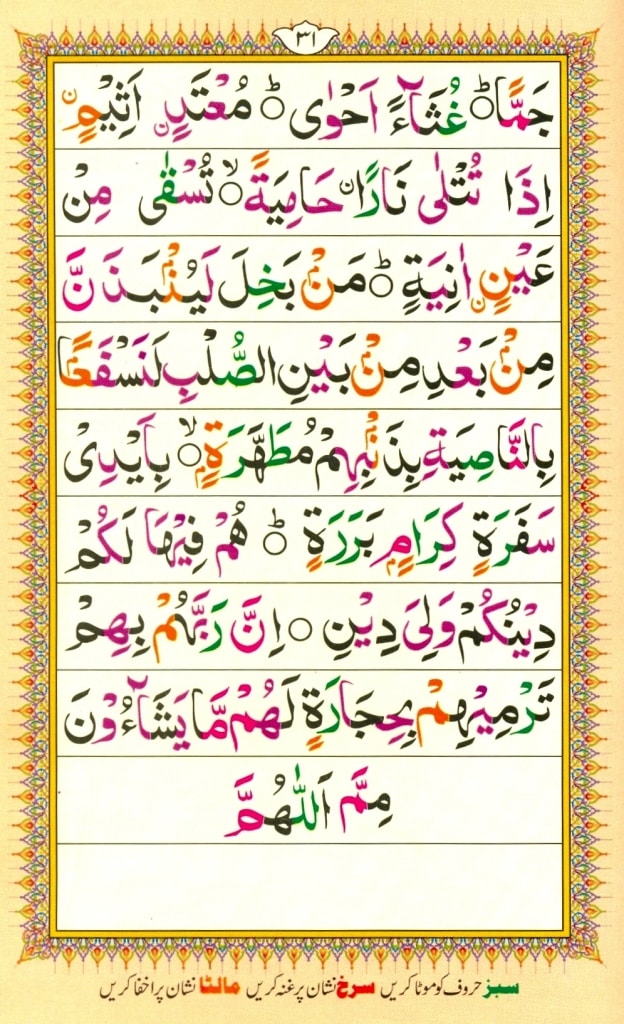 ٣١
جَمًّاؕ○ غُثَآءً اَحْوٰىؕ○ مُعْتَدٍ اَثِيْمٍۭ
اِذَا تُتْلٰى نَارًا حَامِيَةًۙ○ تُسْقٰى مِنْ
عَيْنٍ اٰنِيَةٍؕ○ مَنْۢ بَخِلَ لَيُنْۢبَذَنَّ
مِنْۢ بَعْدِ مِنْۢ بَيْنِ الصُّلْبِ لَنَسْفَعًاۢ
بِالنَّاصِيَةِ بِذَنْۢبِهِمْ مُطَهَّرَةٍۭۙ○ بِاَيْدِىْ
سَفَرَةٍ كِرَامٍۭ بَرَرَةٍؕ○ هُمْ فِيْهَا لَكُمْ
دِيْنُكُمْ وَلِىَ دِيْنِ○ اِنَّ رَبَّهُمْ بِهِمْ
تَرْمِيْهِمْ بِحِجَارَةٍ لَهُمْ مَّا يَشَآءُوْنَ
مِمَّ اَللّٰهُمَّ
سبز حروف کو موٹا کریں سرخ نشان پر غنہ کریں مالٹا نشان پر اخفا کریں